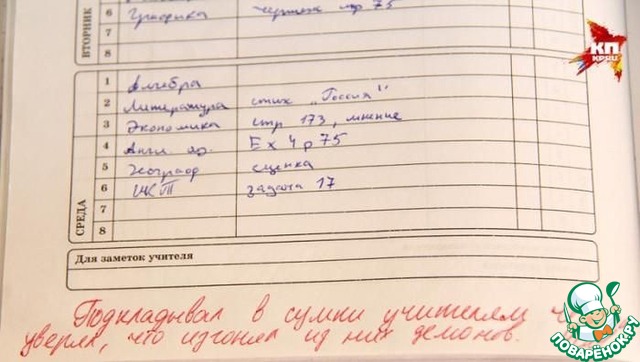 ВТОРНИК
6 черчение стр 75
7
8
СРЕДА
1 Алгебра
2 Литература стих „Россия"
3 Экономика стр 173, мнение
4 Англ. яз. Ex 4 p 75
5 Географ сценка
6 ИКТ задача 17
7
8
Для заметок учителя
Подкладывал в сумки учителям ч
уверял, что изгонял из них демонов.
КП
KP.RU
ПОВАРЁНОК.РУ